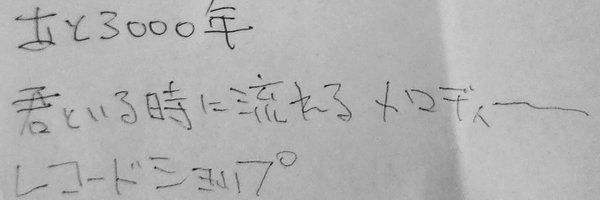 あと3000年
君といる時に流れるメロディー
レコードショップ